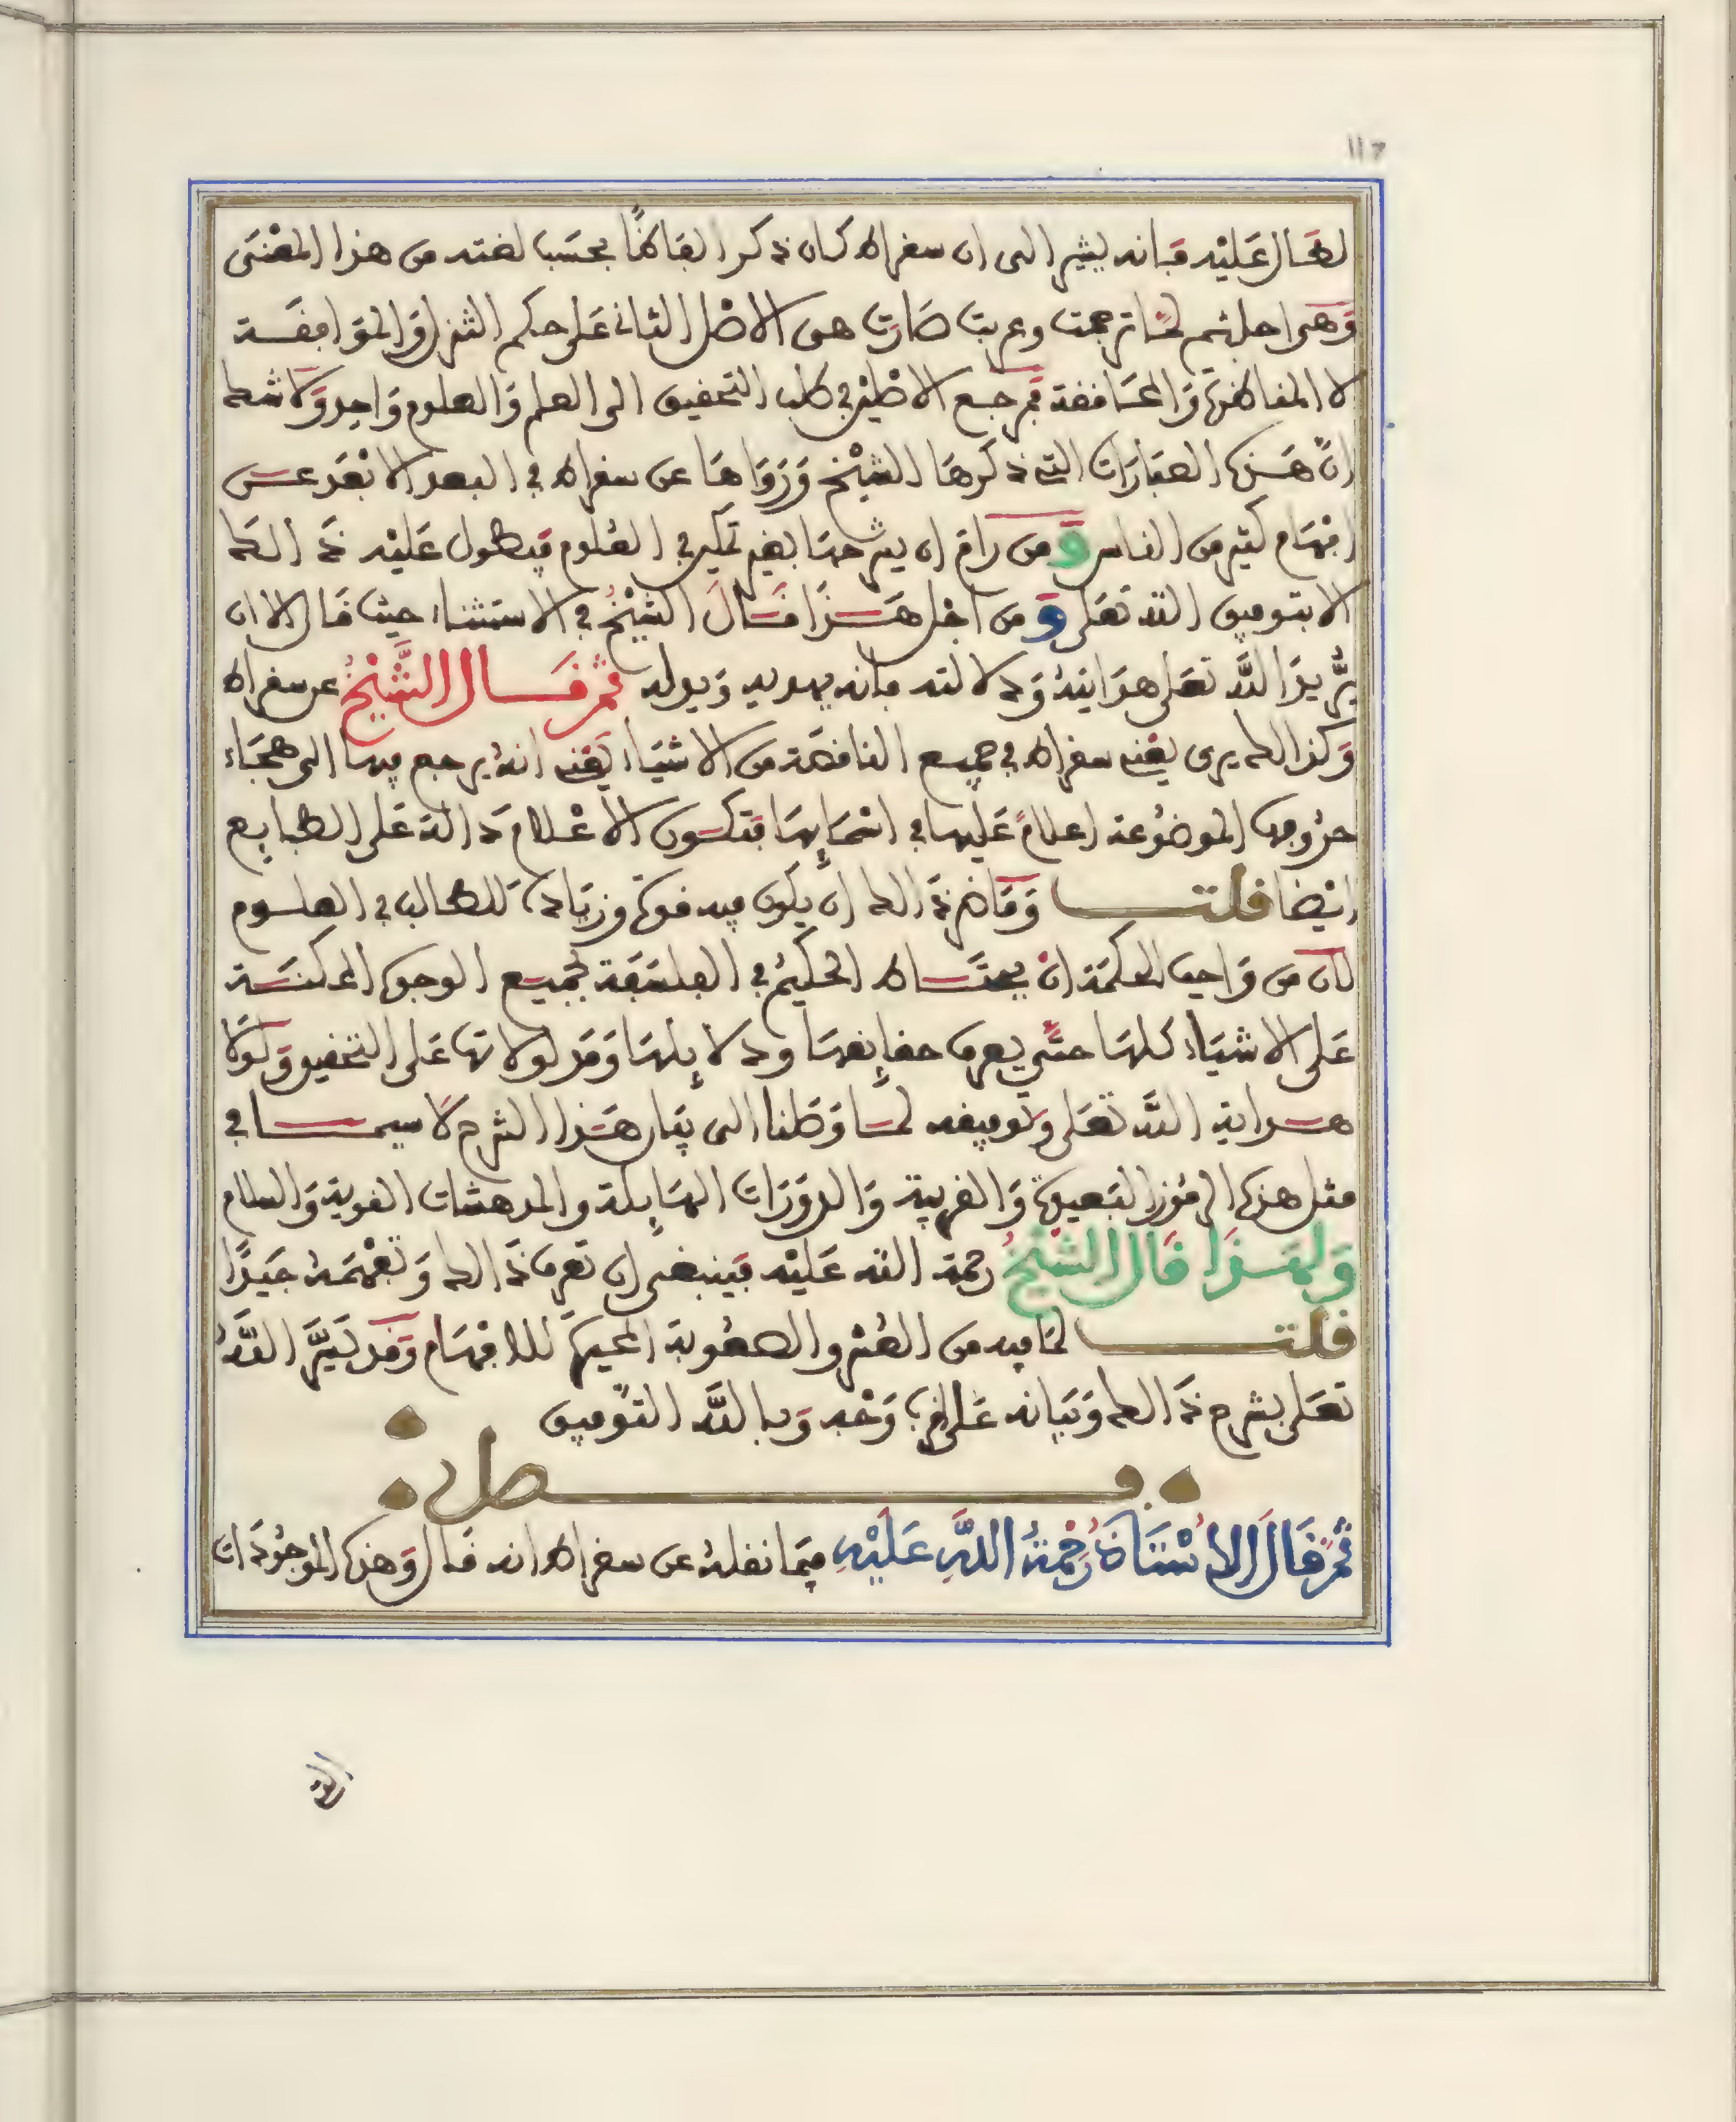 ١١٦
لطال عليه فانه يشير الى ان سقراط كان ذكر الفاظا بحسب لغته من هذا المعنى
وهى اصلية ثم لما ترجمت وعربت صارت هى الاصل الثانى على حكم التنزل والموافقة
لا المناكرة والمناقضة فمرجع الاصلين فى طلب التحقيق الى العلم والعلوم واحد ولا شك
ان هذه العبارات التى ذكرها الشيخ ورواها عن سقراط فى البعد الابعد عن
افهام كثير من الناس ومن رام ان يشرحها بغير تمكين فى العلوم فيطول عليه ذالك
الا بتوفيق الله تعلى ومن اجل هذا قال الشيخ فى الاستثناء حيث قال الا ان
يريد الله تعلى هدايته ودلالته فانه يهديه ويدله ثم قال الشيخ عن سقراط
وكذالك يرى يعنى سقراط فى جميع الناقصة من الاشياء يعنى انه يرجع فيها الى هجاء
حروفها الموضوعة اعلام عليها فى اسمايها فتكون الاعلام دالة على الطبايع
ايضا قلت وما ضر ذالك ان يكون فيه قوة وزيادة للطالب فى العلوم
لان من واجب الحكمة ان يحتاط الحكيم فى الفلسفة بجميع الوجوه الممكنة
على الاشياء كلها حتى يعرف حقايقها ودلايلها ومدلولاتها على التحقيق ولولا
هداية الله تعلى وتوفيقه لما وصلنا الى بيان هذا الشرح لا سيما فى
مثل هذه الرموز البعيدة والغريبة والدورات الهايلة والمدهشات القوية والسلام
ولهذا قال الشيخ رحمة الله عليه فينبغى ان تعرف ذالك وتفهمه جيدا
قلت لما فيه من العسر والصعوبة المحيرة للافهام وقد يسر الله
تعلى بشرح ذالك وبيانه على اقرب وجه وبالله التوفيق
فصل
ثم قال الاستاذ رحمة الله عليه فيما نقله عن سقراط انه قال وهذه الموجودات